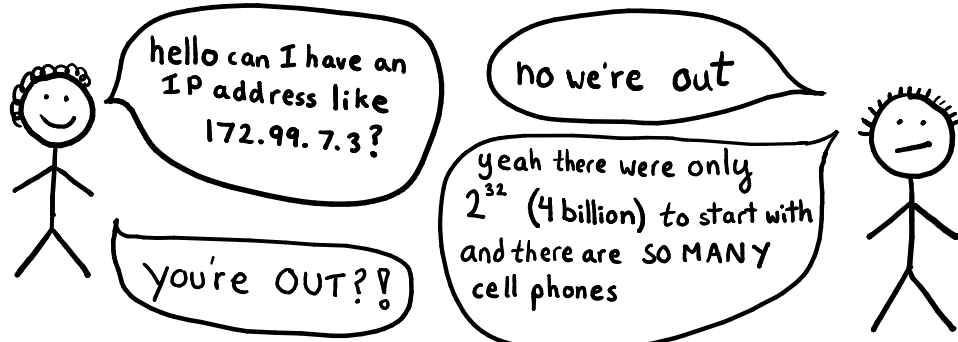 hello can I have an
IP address like
172.99.7.3?
no we're out
you're OUT?!
yeah there were only
2³² (4 billion) to start with
and there are SO MANY
cell phones